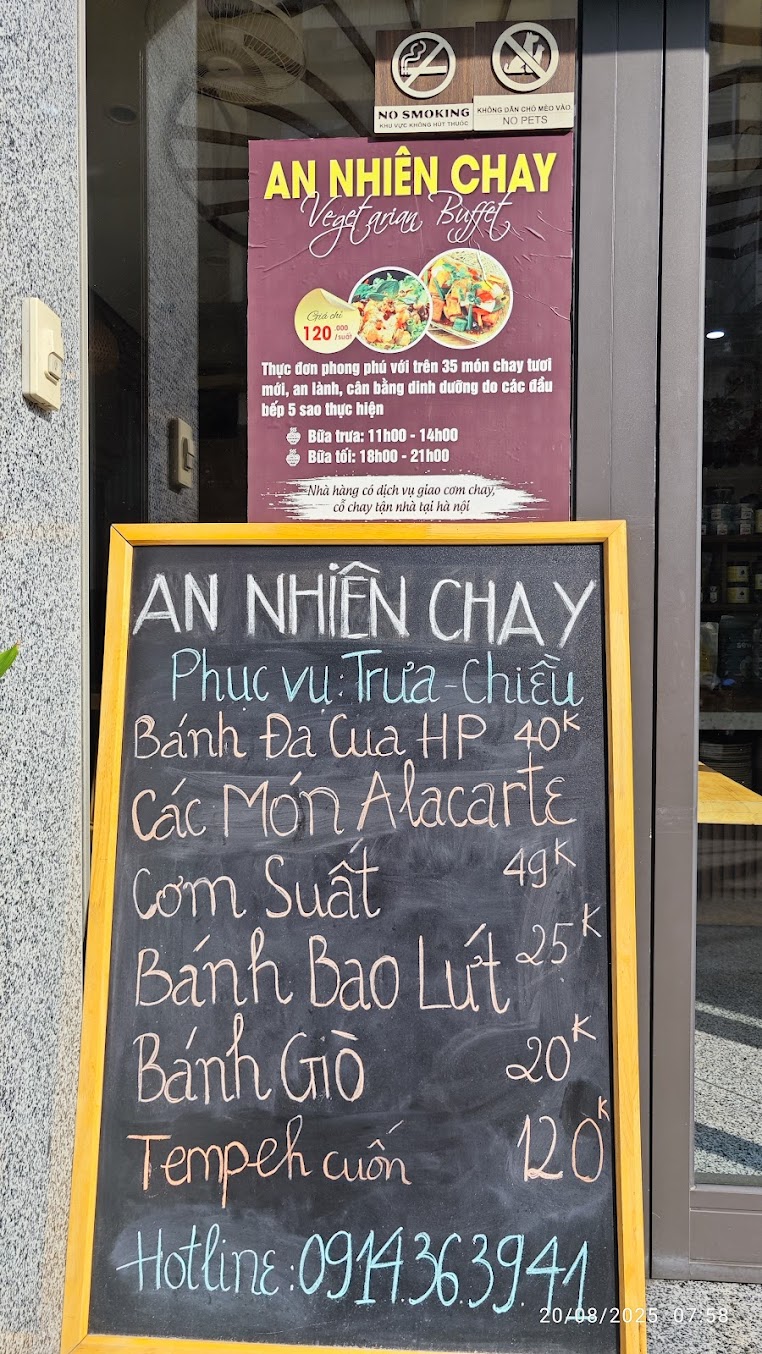 NO SMOKING
KHU VỰC KHÔNG HÚT THUỐC
KHÔNG DẪN CHÓ MÈO VÀO
NO PETS
AN NHIÊN CHAY
Vegetarian Buffet
Giá chỉ
120.000
/suất
Thực đơn phong phú với trên 35 món chay tươi
mới, an lành, cân bằng dinh dưỡng do các đầu
bếp 5 sao thực hiện
Bữa trưa: 11h00 - 14h00
Bữa tối: 18h00 - 21h00
Nhà hàng có dịch vụ giao cơm chay,
cỗ chay tận nhà tại hà nội
AN NHIÊN CHAY
Phục vụ: Trưa - Chiều
Bánh Đa Cua HP 40K
Các Món Alacarte
Cơm Suất 49K
Bánh Bao Lứt 25K
Bánh Giò 20K
Tempeh cuốn 120K
Hotline: 0914.363.941
20/08/2025 07:58